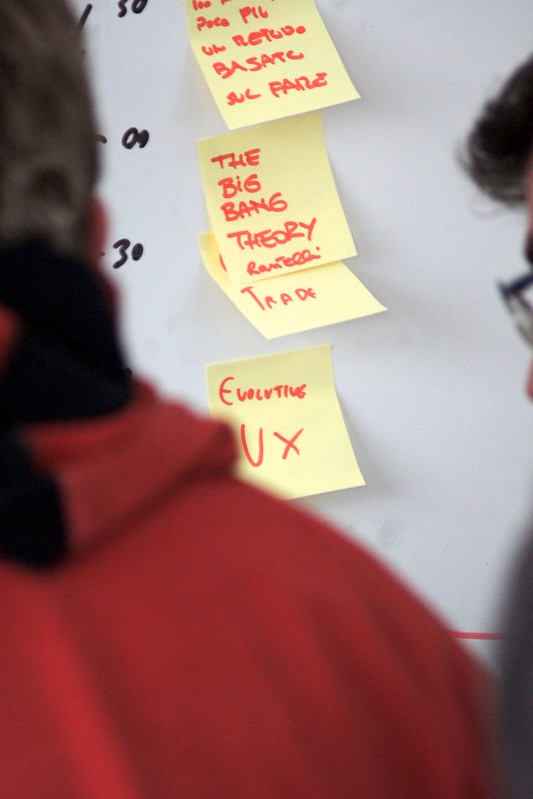 30
POCO PIÙ
UN METODO
BASATO
SUL FARE
00
THE
BIG
BANG
THEORY
30
TRADE
EVOLUTIVE
UX